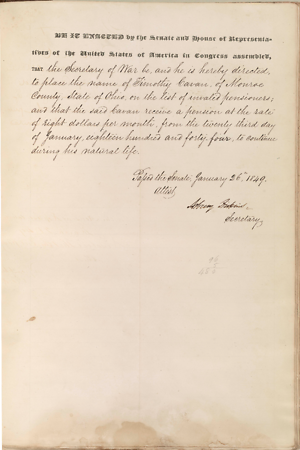 BE IT ENACTED by the Senate and House of Representa-
tives of the United States of America in Congress assembled,
THAT the Secretary of War be, and he is hereby directed
to place the name of Timothy Cavan, of Monroe
County, State of Ohio, on the list of invalid pensioners,
and that the said Cavan receive a pension at the rate
of eight dollars per month, from the twenty third day
of January, eighteen hundred and forty four, to continue
during his natural life.
Passed the Senate, January 26, 1849.
Attest,
Secretary,